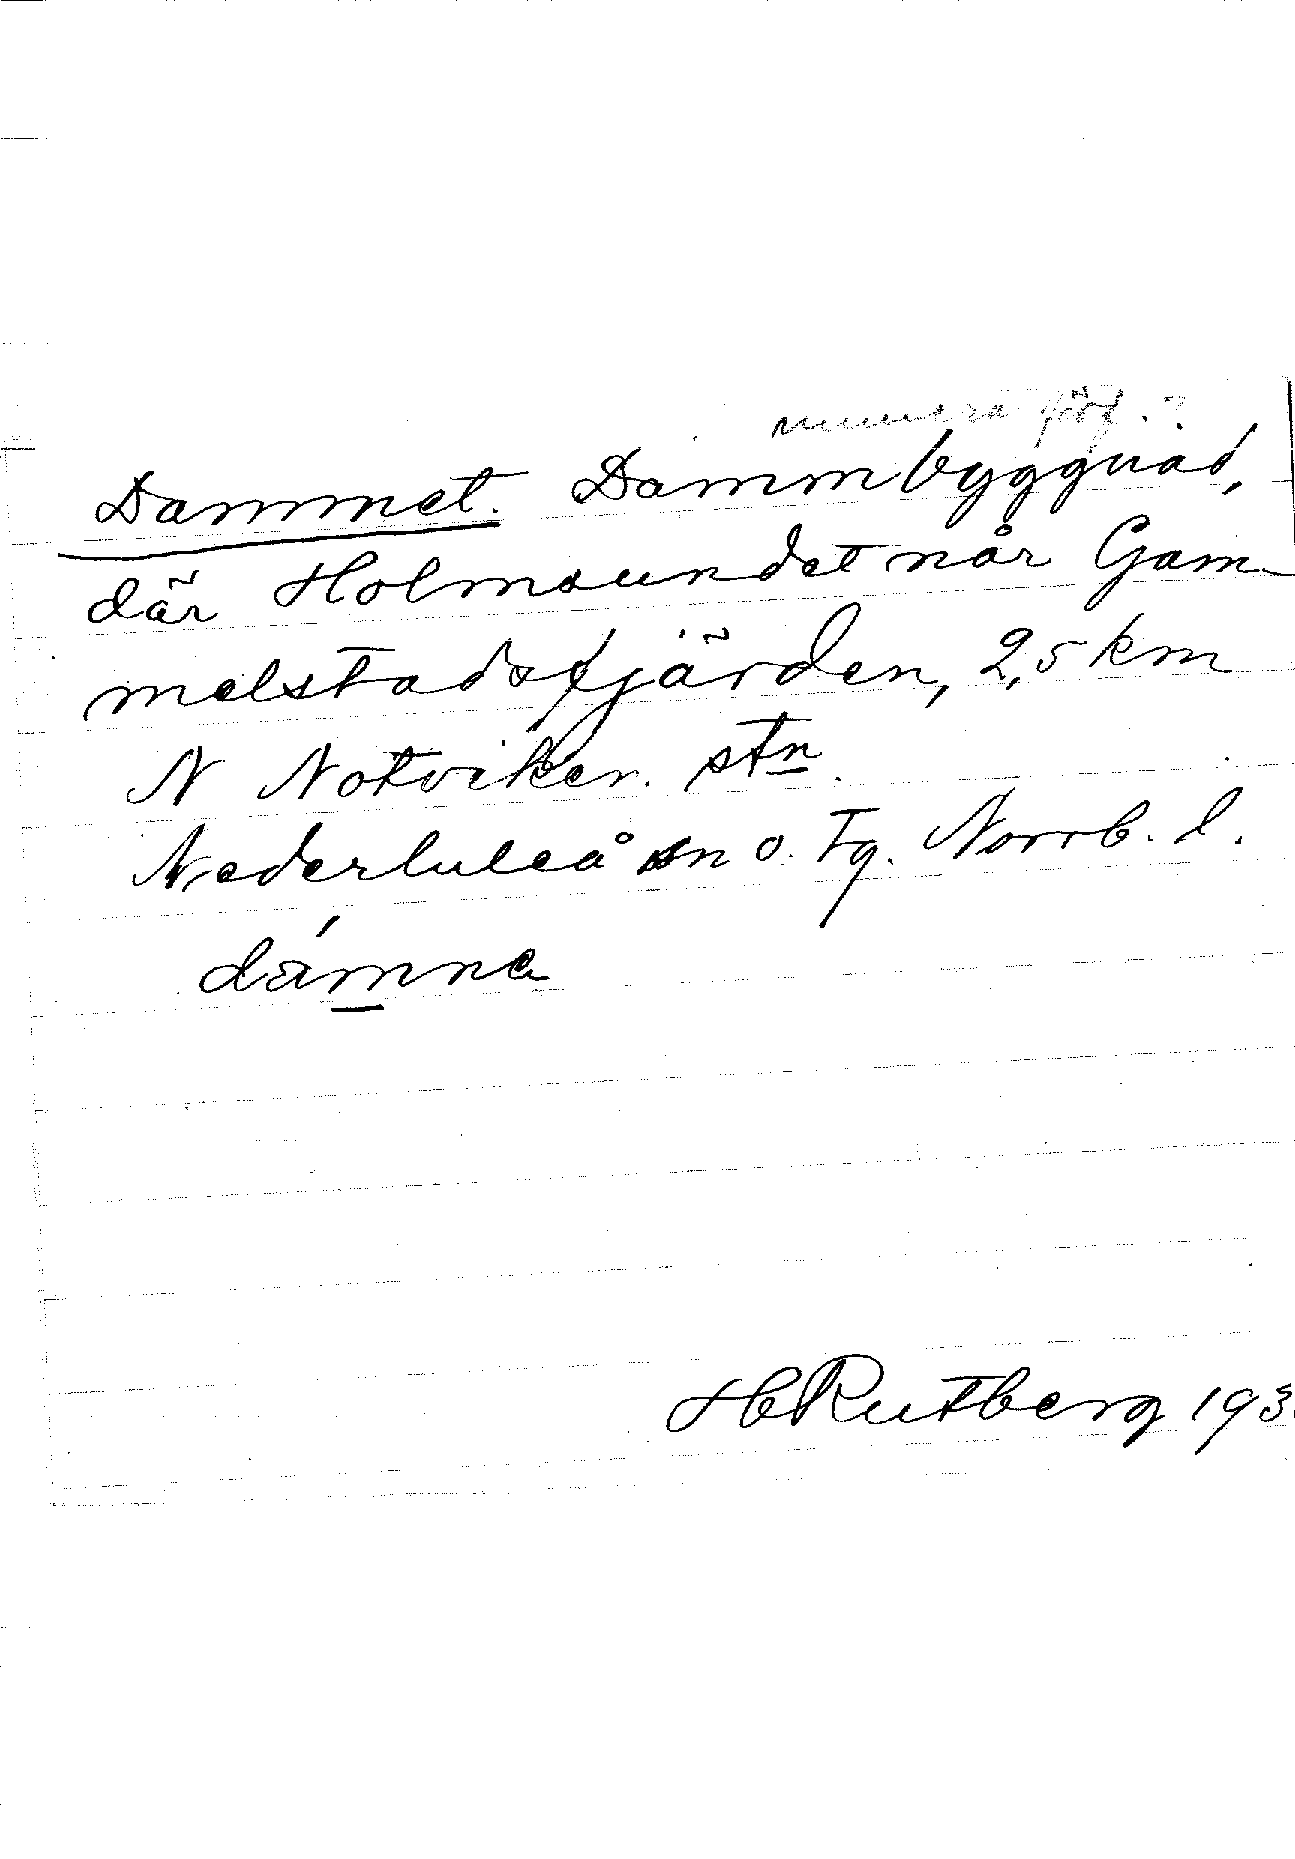 numera
Dammet. Dammbyggnad,
där Holmsundet når Gam-
melstadsfjärden, 2,5 km
N Notviken. stn.
Nederluleå sn o. Tg. Norrb. l.
dámne
HRutberg 193